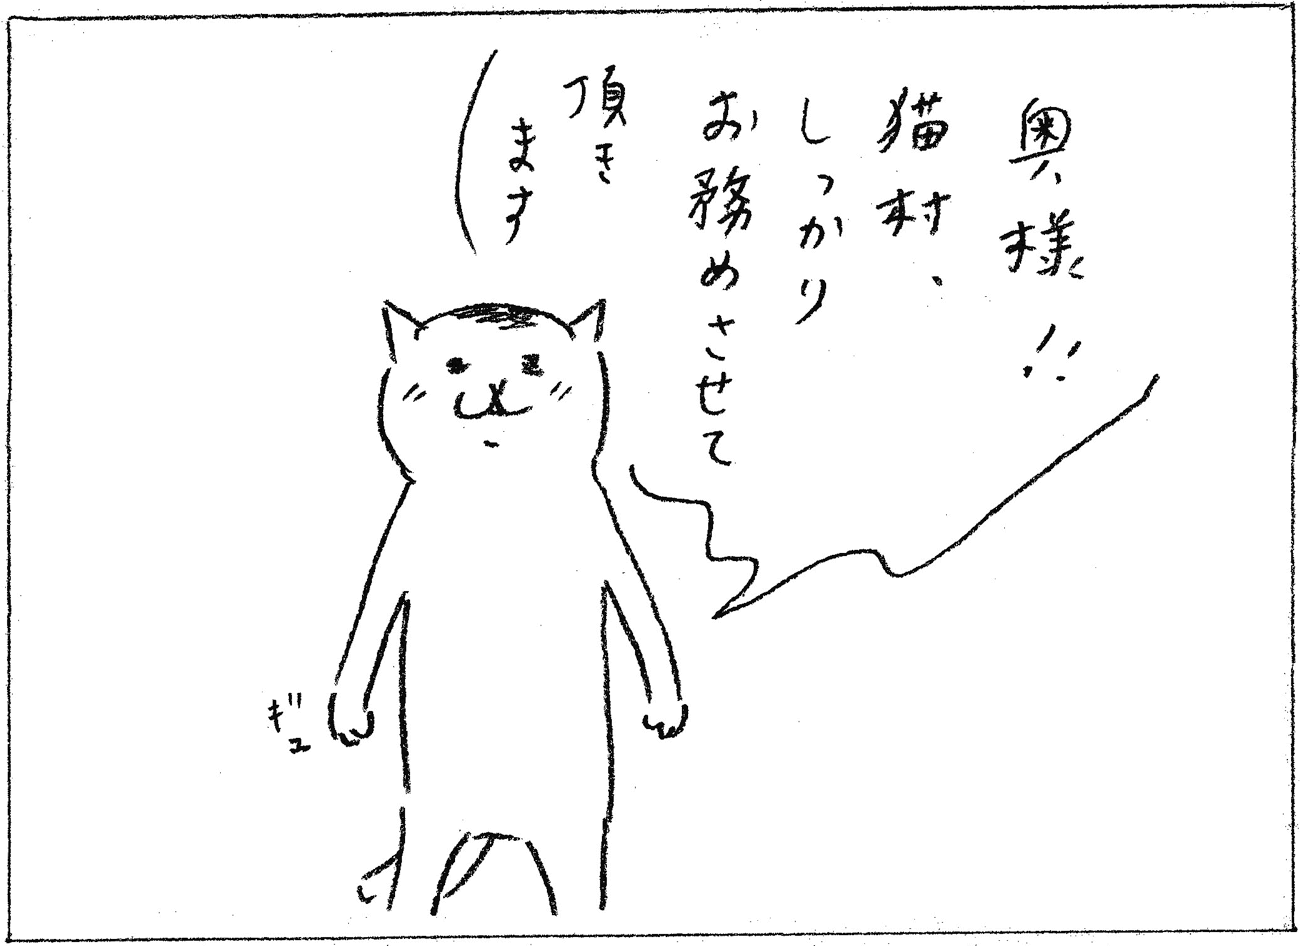 奥様!!
猫村、
しっかり
お務めさせて
頂き
ます
ギュ